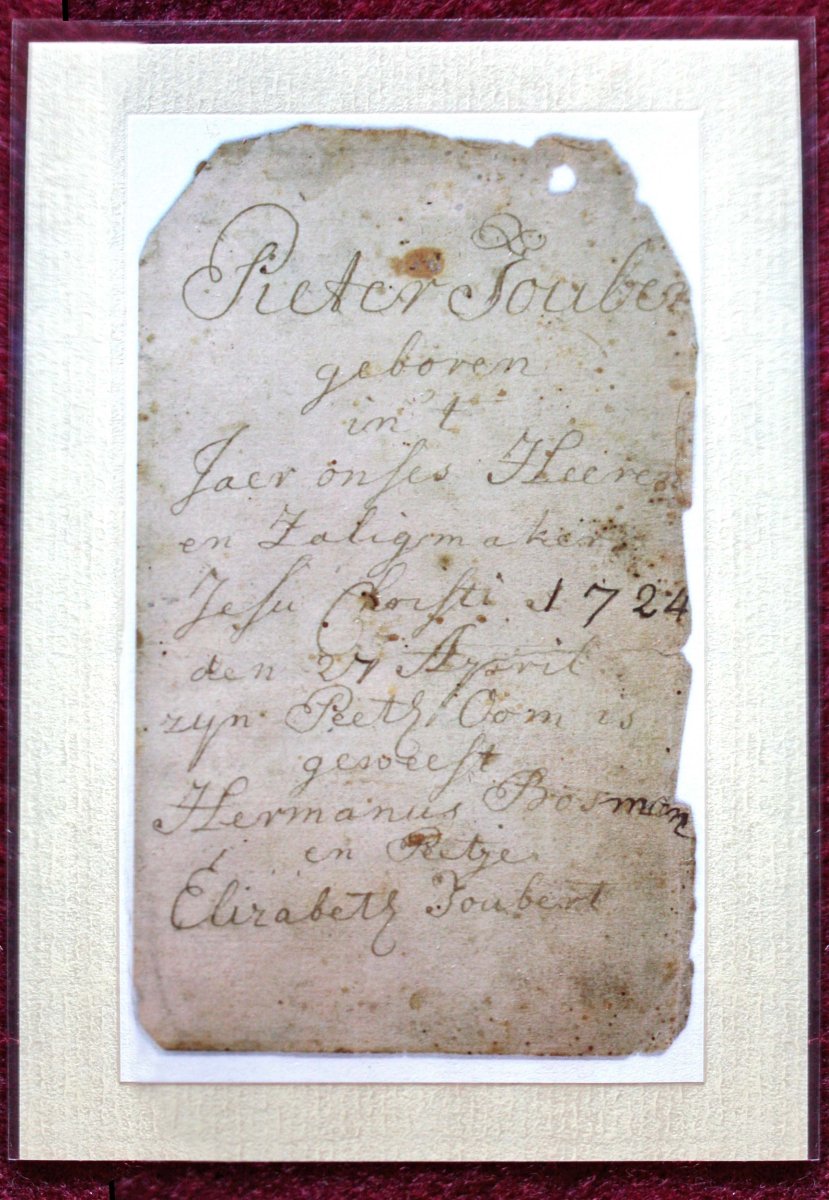 Pieter Jouber
geboren
in 't
Jaer onses Heeren
en Zaligmaker
Jesu Christi 1724
den 27 April
zyn Peeth Oom is
geweest
Hermanus Bosman
en Petje
Elizabeth Joubert